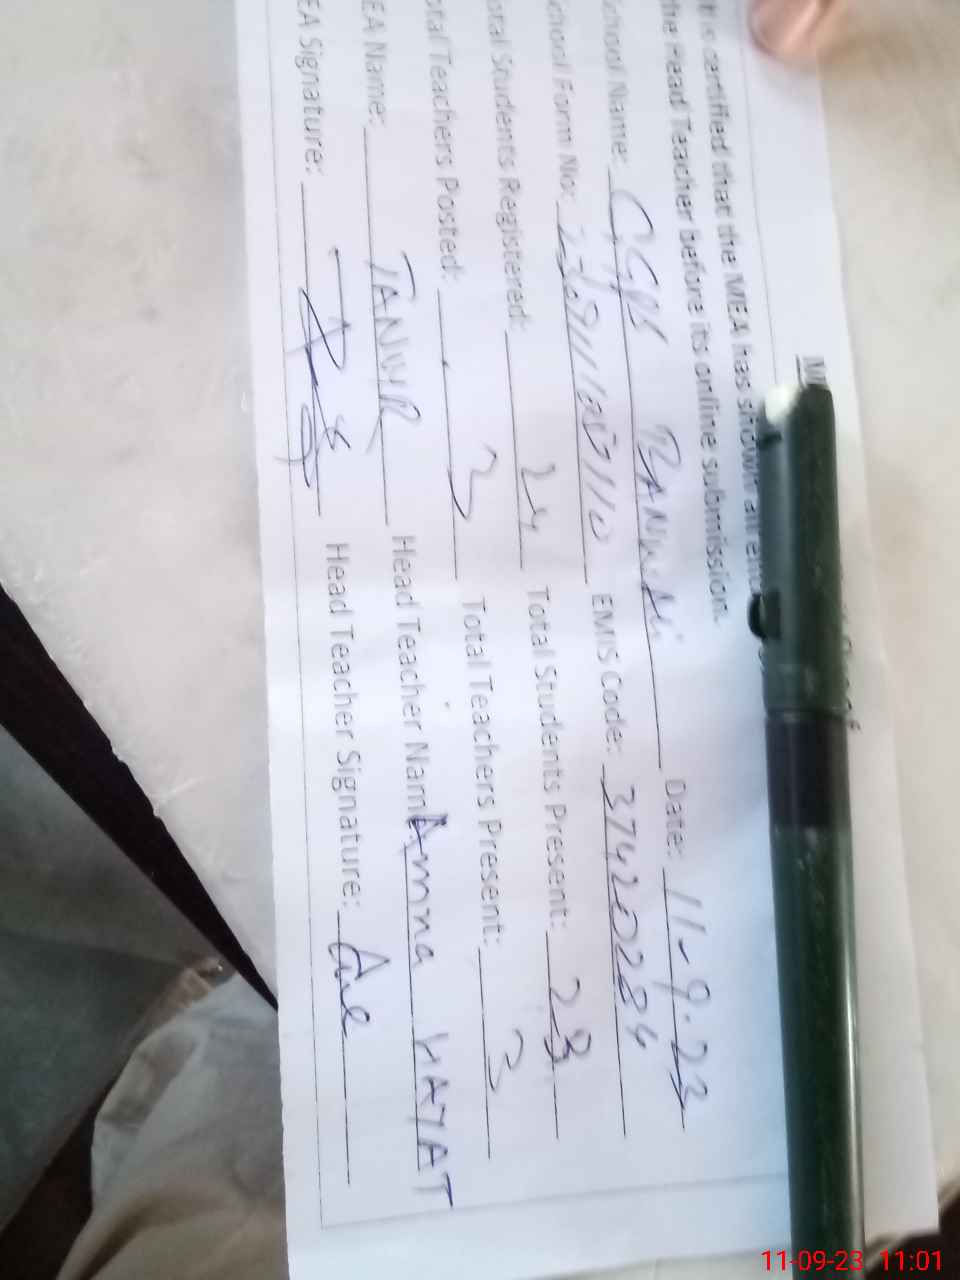 t is certified that the MEA has shown all
the Head Teacher before its online submission.
School Name: GGPS Date: 11-9-23
School Form No: EMIS Code: 37420284
otal Students Registered: 24 Total Students Present: 23
otal Teachers Posted: 3 Total Teachers Present: 3
EA Name: TANVIR Head Teacher Nam Amna HAYAT
EA Signature: Head Teacher Signature:
11-09-23 11:01